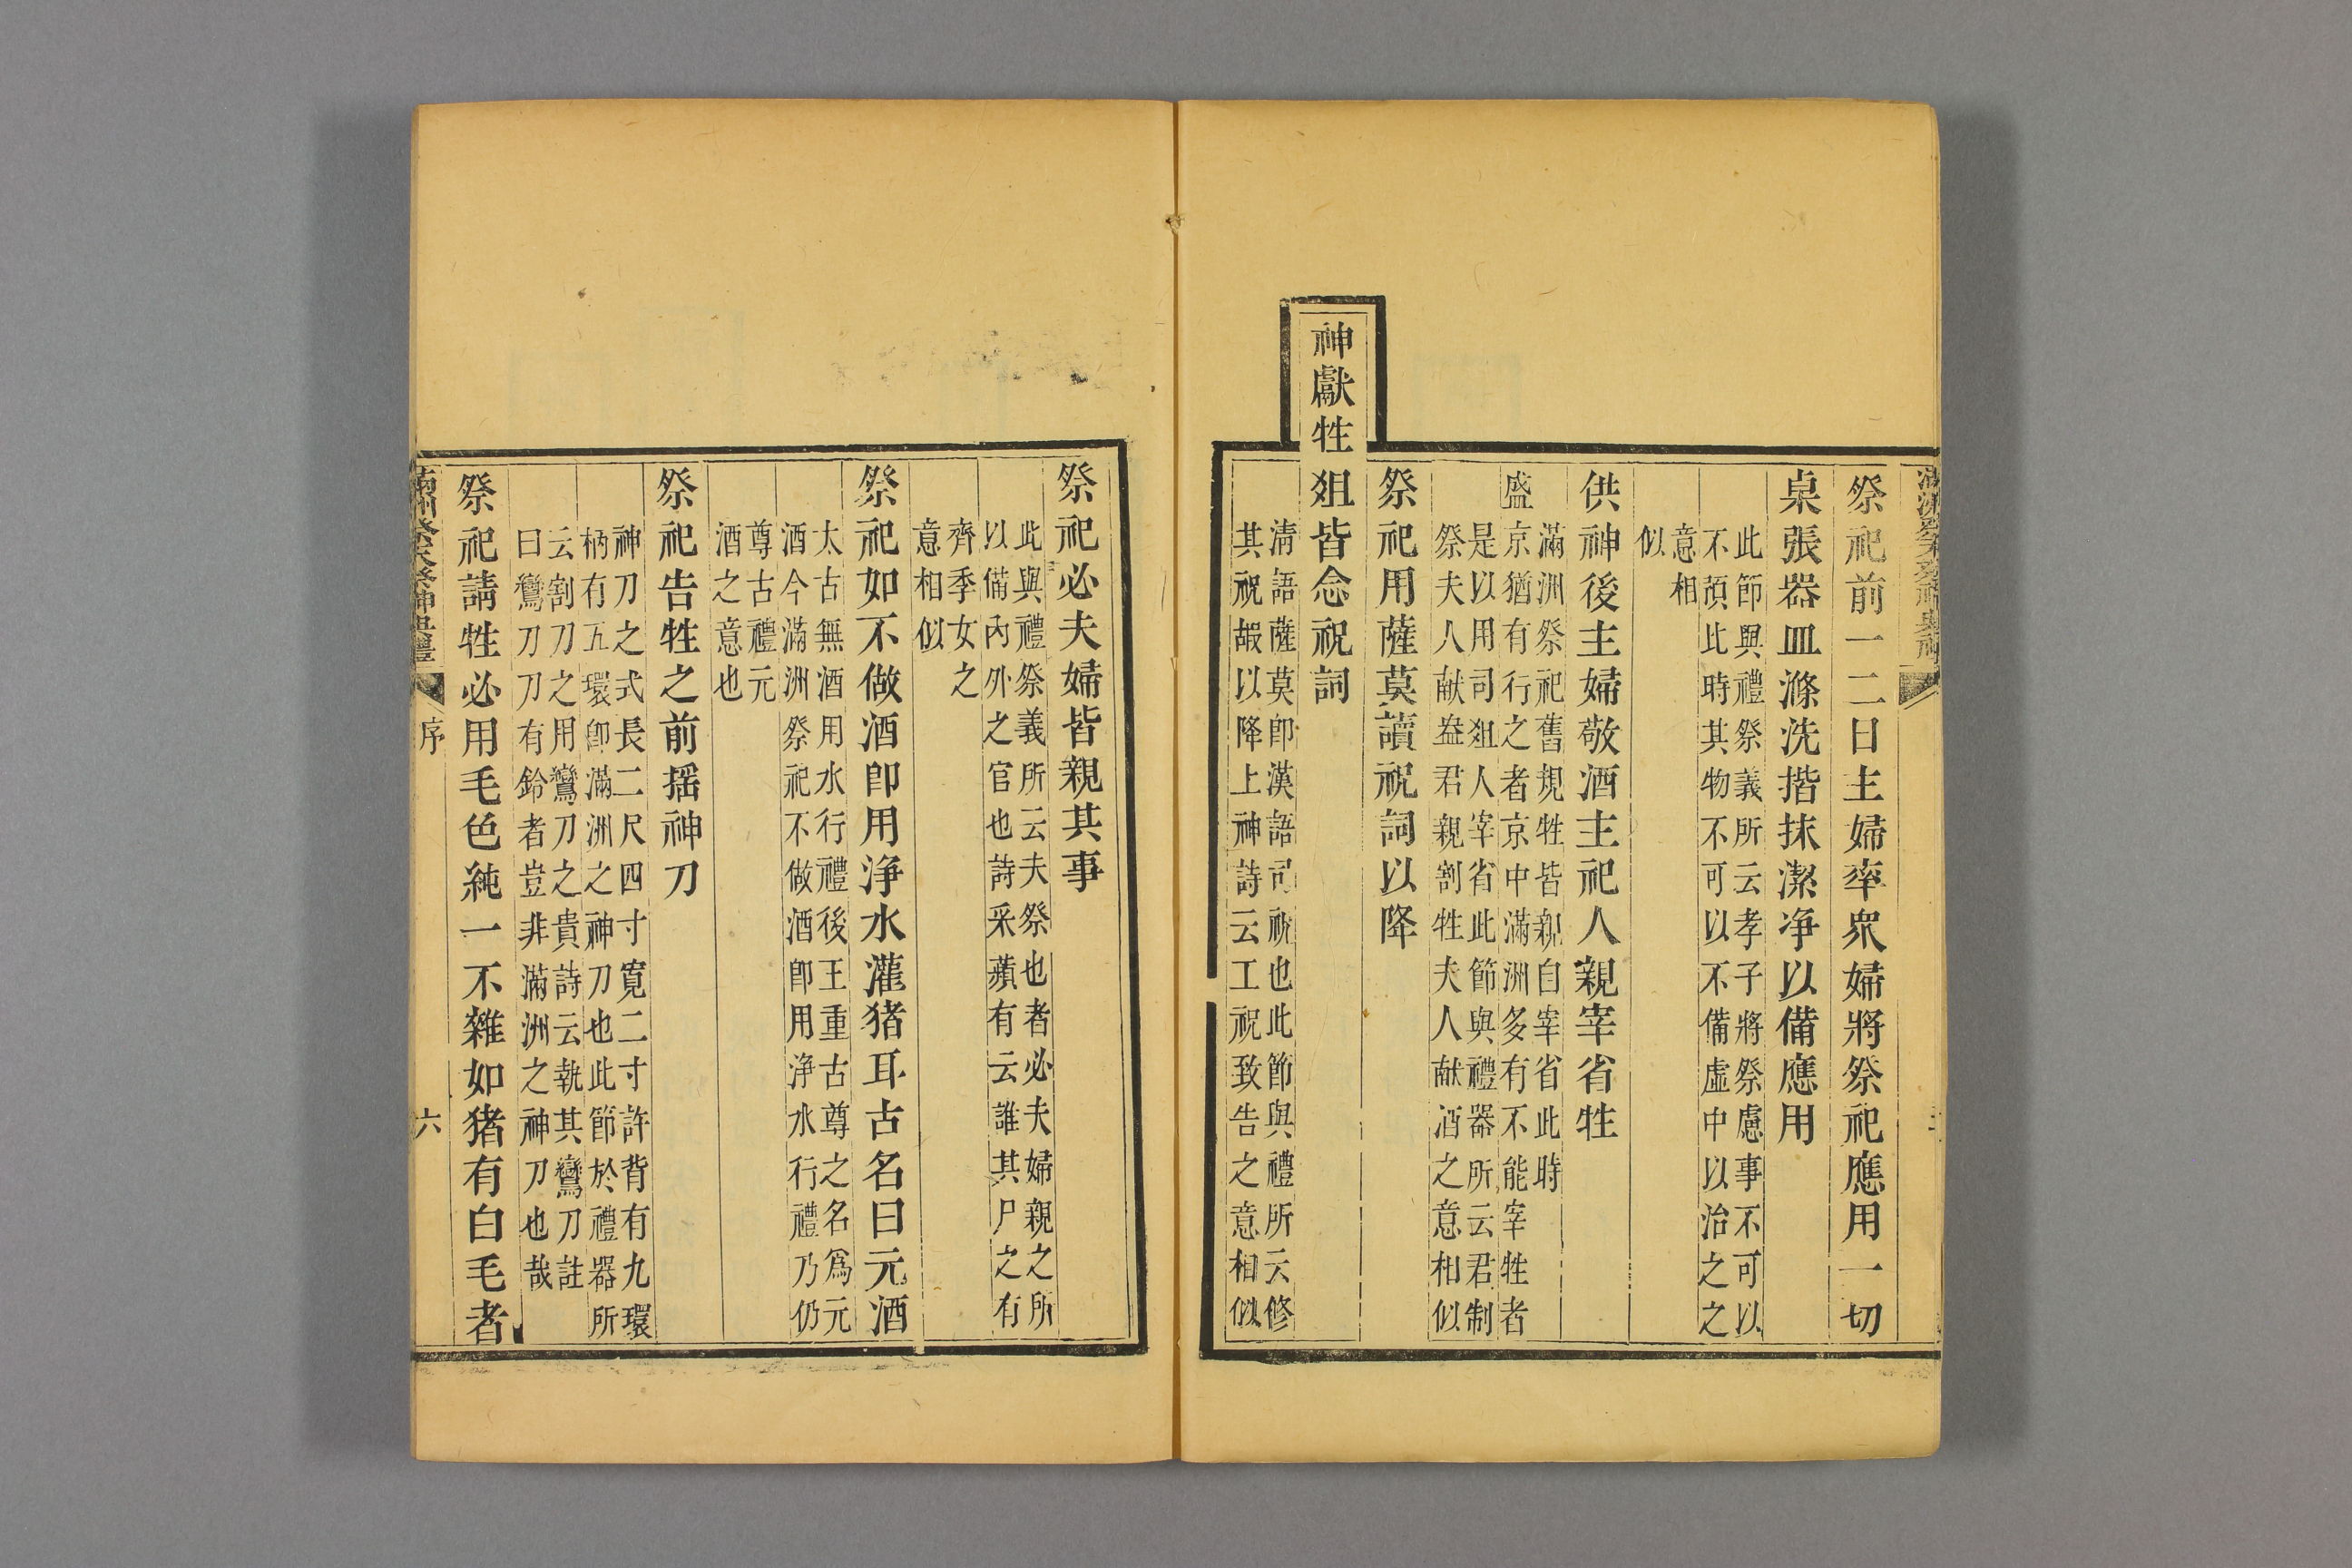 祭祀前一二日主婦率眾婦將祭祀應用一切
桌張器皿滌洗揩抹潔净以備應用
此節與禮祭義所云孝子將祭慮事不可以
不預比時其物不可以不備虛中以治之之
意相
似
供神後主婦敬酒主祀人親宰省牲
滿洲祭祀舊規牲皆親自宰省此時
盛京猶有行之者京中滿洲多有不能宰牲者
是以用司俎人宰省此節與禮器所云君制
祭夫人献盎君親割牲夫人献酒之意相似
祭祀用薩莫讀祝詞以降
神獻牲俎皆念祝詞
清語薩莫即漢語司祝也此節與禮所云修
其祝嘏以降上神詩云工祝致告之意相似
祭祀必夫婦皆親其事
此與禮祭義所云夫祭也者必夫婦親之所
以備內外之官也詩采蘋有云誰其尸之有
齊季女之
意相似
祭祀如不做酒即用浄水灌猪耳古名曰元酒
太古無酒用水行禮後王重古尊之名爲元
酒今滿洲祭祀不做酒即用浄水行禮乃仍
尊古禮元
酒之意也
祭祀告牲之前搖神刀
神刀之式長二尺四寸寬二寸許背有九環
柄有五環即滿洲之神刀也此節於禮器所
云割刀之用鸞刀之貴詩云執其鸞刀註
曰鸞刀刀有鈴者豈非滿洲之神刀也哉
祭祀請牲必用毛色純一不雜如猪有白毛者
滿洲祭天祭神典禮
序
六